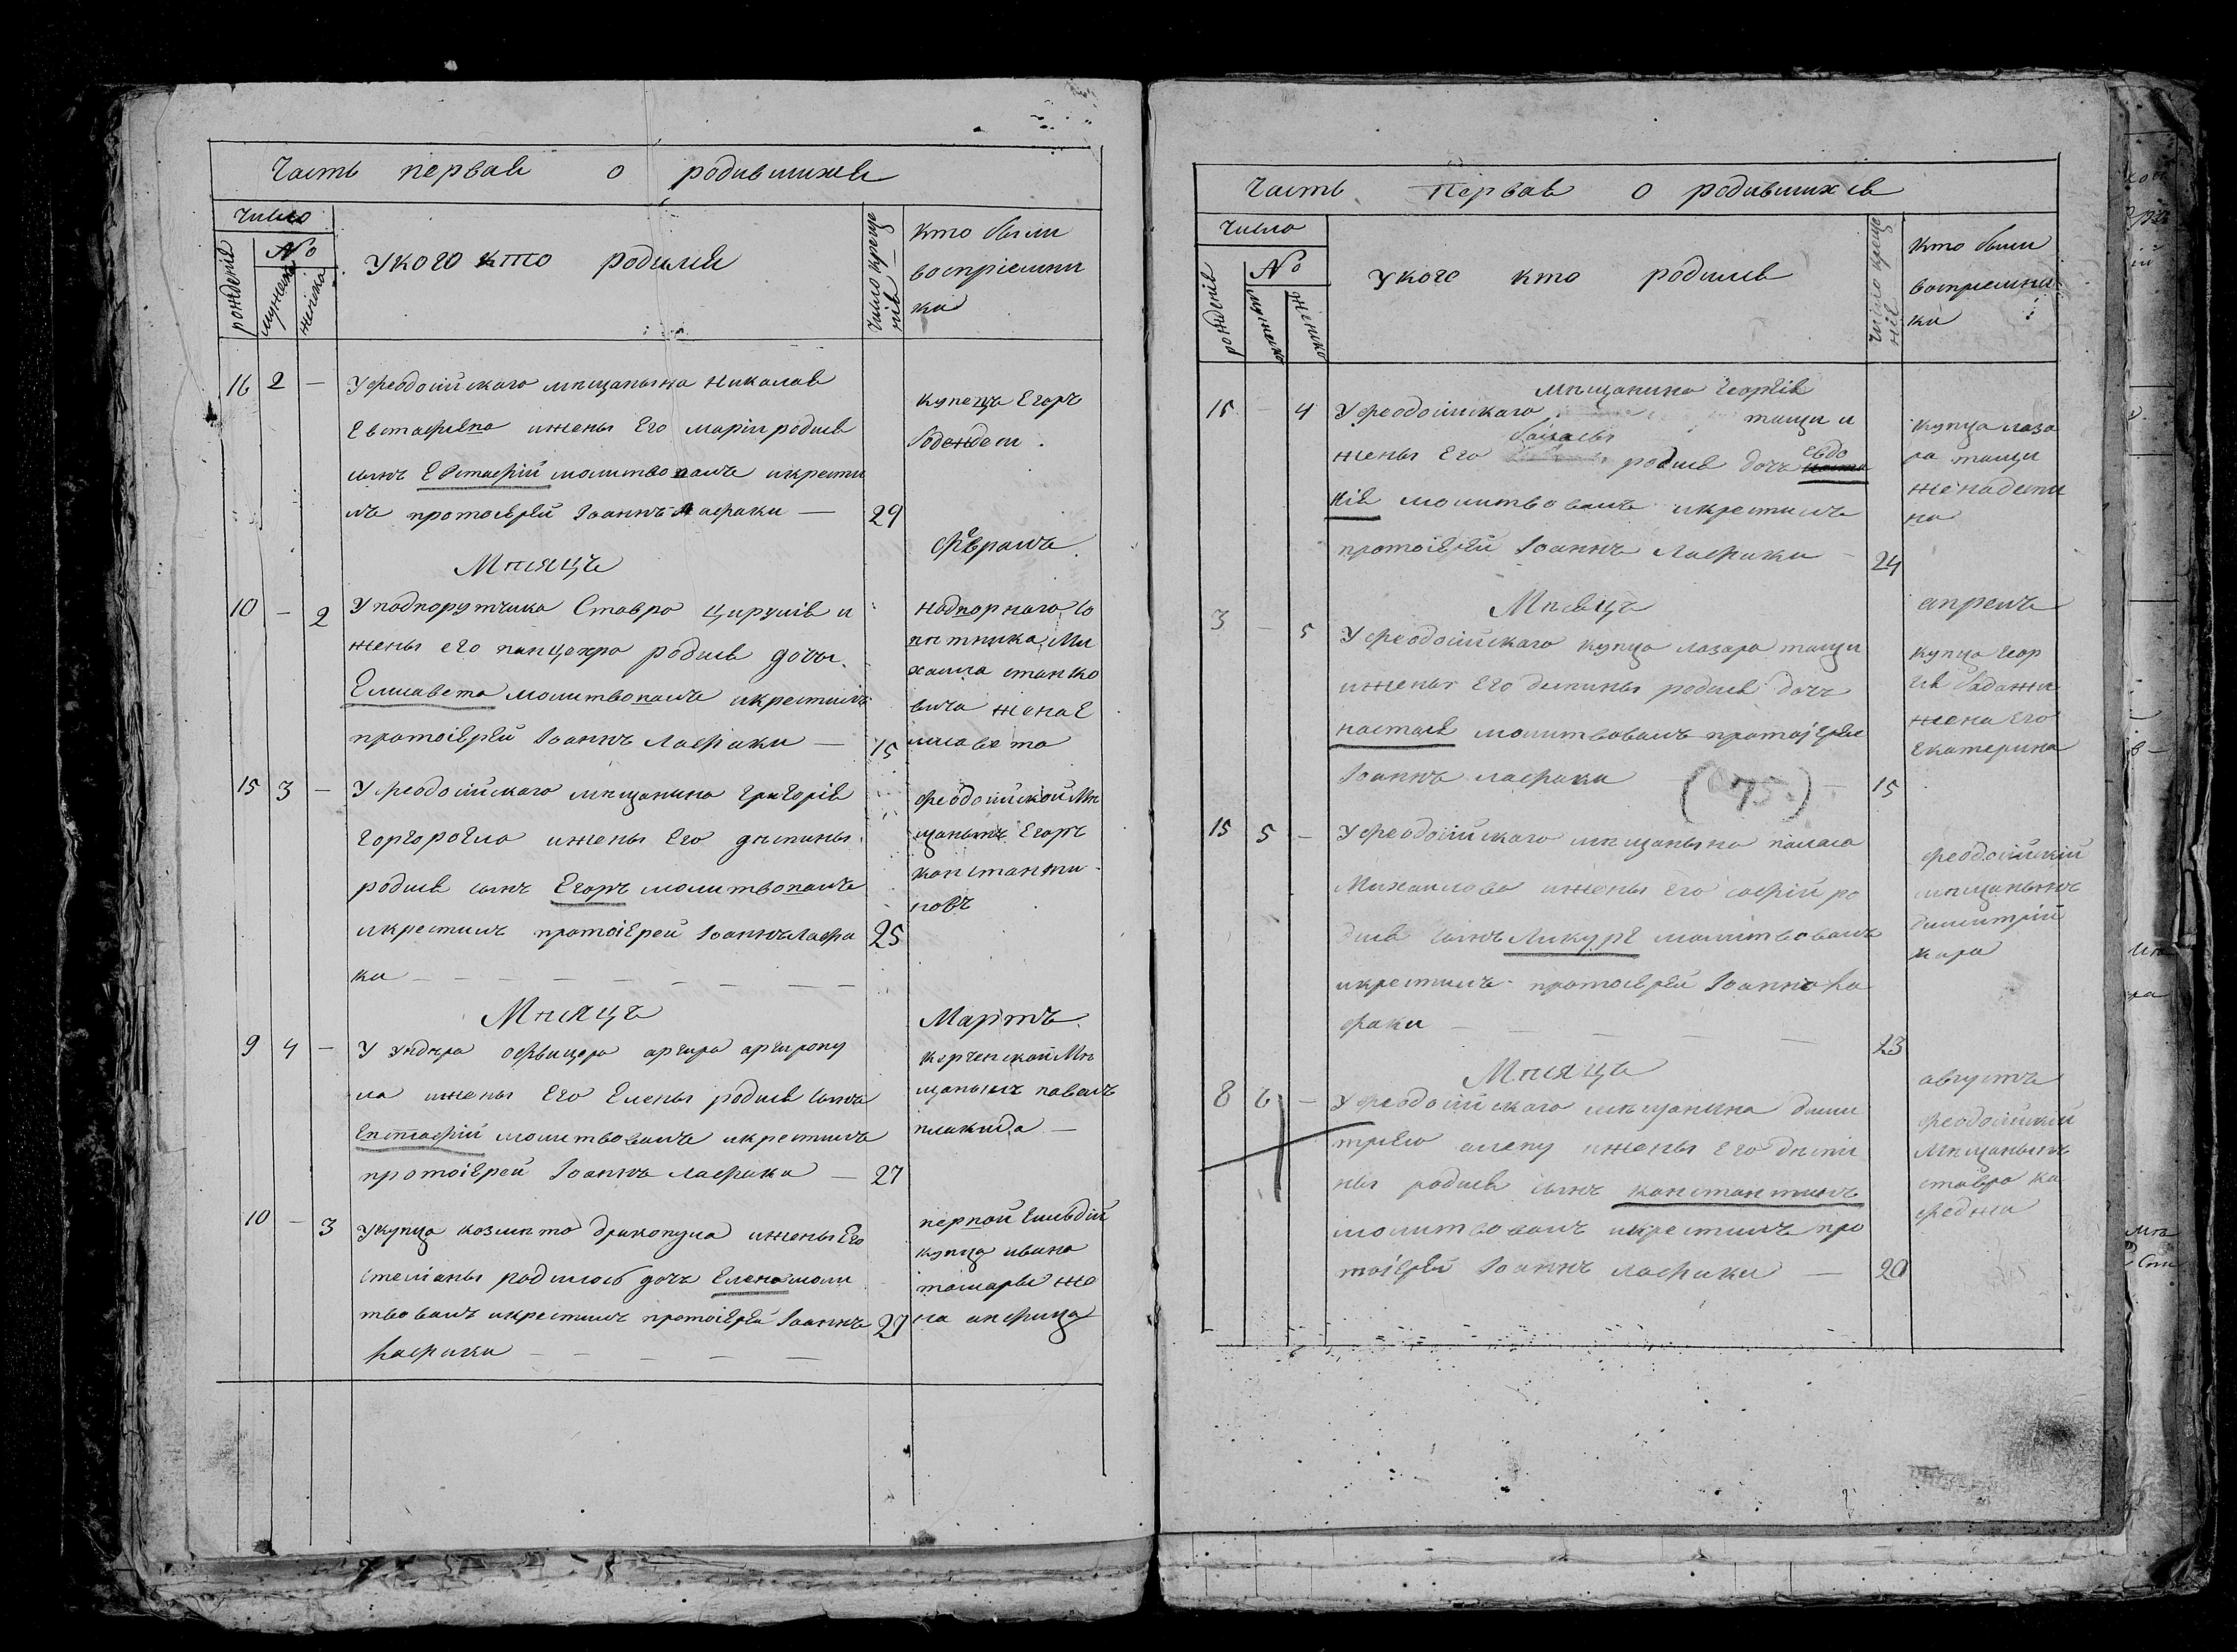 Часть первая о родившихся
Число
No
рожденія
мужеска
женска
У кого кто родился
число креще
нія
кто были
воспріемни
ки
16 2 — У феодосійскаго мѣщанина Николая
Евстафіева и жены Его Маріи родися
сынъ Евстафій молитвовалъ и крести
лъ протоіерей Іоаннъ Лафаки — 29
купецъ Егоръ
Мѣсяцъ
Февраль
10 — 2 У подпорутчика Ставро Цирулія и
жены его родися дочь
Елисавета молитвовалъ и крестилъ
протоіерей Іоаннъ Лафаки — 15
надворнаго со
вѣтника Ми
хаила станко
вича жена Е
лисавета
15 3 — У феодосійскаго мѣщанина Григорія
и жены Его деспины
родися сынъ Егоръ молитвовалъ
и крестилъ протоіерей Іоаннъ Лафа 25
ки — — — — — — — —
феодосійской Мѣ
щанинъ Егоръ
Константи
новъ
Мѣсяцъ
Мартъ
9 4 — У ундеръ офицера аргира аргиропу
ла и жены Его Елены родися сынъ
Евстафій молитвовалъ и крестилъ
протоіерей Іоаннъ Лафаки — 27
Керченской Мѣ
щанинъ павелъ
плакида —
10 — 3 У купца козмы то дракопула и жены Его
стеліаны родилось дочь Елена моли
твовалъ и крестилъ протоіерей Іоаннъ 27
Лафаки — — — — —
первой Гильдіи
купца ивана
томары же
на анфица
Часть Первая О родившихся
число
No
рожденія
мужеско
женско
У кого кто родился
число креще
нія
кто были
воспріемни
ки
мѣщанина Георгія
15 — 4 У феодосійскаго тащи и
жены Его родися дочь Евдо
кія молитвовалъ и крестилъ
протоіерей Іоаннъ Лафаки — 24
купца лаза
ра тащи
жена деспи
на
Мѣсяцъ
апрель
3 — 5 У феодосійскаго купца лазара тащи
и жены Его деспины родися дочь
настася молитвовалъ протоіерей
Іоаннъ лафаки (75) — 15
купца Геор
гія
жена Его
Екатерина
15 5 — У феодосійскаго мѣщанина
Михаилова и жены Его софіи ро
дися сынъ Ликургъ молитвовалъ
и крестилъ протоіерей Іоаннъ Ла
факи — — — — 23
феодосійскій
мѣщанинъ
димитрій
кара
Мѣсяцъ
августъ
8 6 — У феодосійскаго мѣщанина дими
трію алепу и жены Его деспи
ны родися сынъ константинъ
молитвовалъ и крестилъ про
тоіерей Іоаннъ лафаки — 20
феодосійскій
Мѣщанинъ
ставро ка
феджи